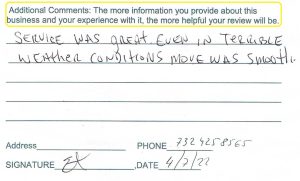 Additional Comments: The more information you provide about this
business and your experience with it, the more helpful your review will be.
SERVICE WAS GREAT. EVEN IN TERRIBLE
WEATHER CONDITIONS MOVE WAS SMOOTH.
Address PHONE 732 425 8565
SIGNATURE ,DATE 4/7/22